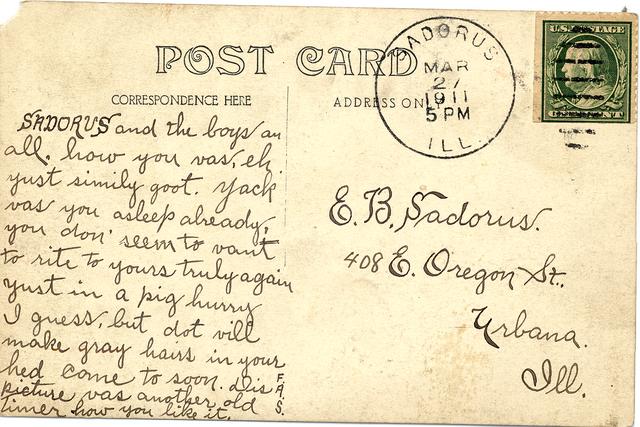 POST CARD
CORRESPONDENCE HERE
ADDRESS ON
SADORUS
MAR
27
1911
5 PM
ILL.
U.S. POSTAGE
SADORUS and the boys an
all. how you vas, eh.
yust simily goot. Yack
vas you asleep already,
you don' seem to vant
to rite to yours truly again
yust in a pig hurry
I guess, but dot vill
make gray hairs in your
hed come to soon. dis
picture vas another old
timer how you like it.
F.
A.
S.
E. B. Sadorus.
408 E. Oregon St.,
Urbana.
Ill.